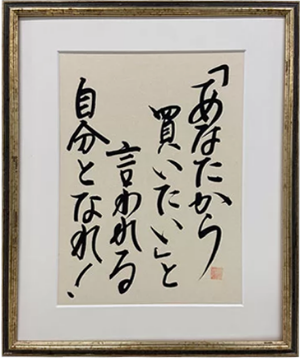 「あなたから
買いたい」と
言われる
自分となれ!